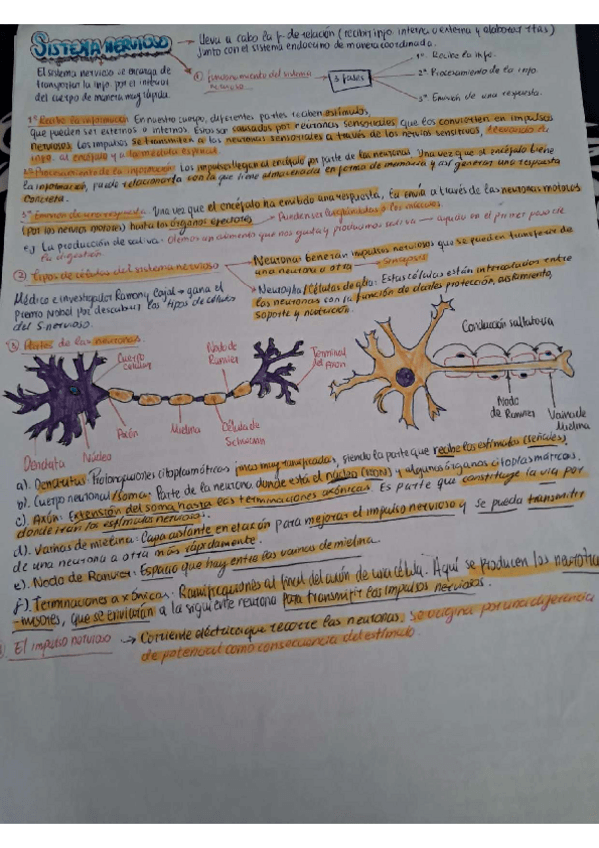 SISTEMA NERVIOSO → lleva a cabo la f. de relación (recibir info. interna o externa y elaborar rtas)
junto con el sistema endocrino de manera coordinada.
El sistema nervioso se encarga de
transportar la info. por el interior
del cuerpo de manera muy rápida.
① Funcionamiento del sistema
nervioso → 3 fases
1º Recibe la info.
2º Procesamiento de la info.
3º Emisión de una respuesta.
1º Recibe la información: En nuestro cuerpo, diferentes partes reciben estímulos,
que pueden ser externos o internos. Estos son causados por neuronas sensoriales que los convierten en impulsos
nerviosos. Los impulsos se transmiten a las neuronas sensoriales a través de los nervios sensitivos, llevando la
info. al encéfalo y a la médula espinal.
2º Procesamiento de la información: Los impulsos llegan al encéfalo por parte de las neuronas. Una vez que el encéfalo tiene
la información, puede relacionarla con la que tiene almacenada en forma de memoria y así generar una respuesta
concreta.
3º Emisión de una respuesta: Una vez que el encéfalo ha emitido una respuesta, la envía a través de las neuronas motoras
(por los nervios motores) hasta los órganos efectores → Pueden ser las glándulas o los músculos.
ej: La producción de saliva. Olemos un alimento que nos gusta y producimos saliva → ayuda en el primer paso de
la digestión.
② Tipos de células del sistema nervioso
Neuronas: Generan impulsos nerviosos que se pueden transferir de
una neurona a otra → Sinapsis
Neuroglia/Células de glia: Estas células están intercaladas entre
las neuronas con la función de darles protección, aislamiento,
soporte y nutrición.
Médico e investigador Ramón y Cajal → gana el
Premio Nobel por descubrir los tipos de células
del S. nervioso.
③ Partes de las neuronas.
Cuerpo
celular
Nodo de
Ranvier
Terminal
del Axón
Conducción saltatoria
Axón
Mielina
Célula de
Schwann
Dendrita
Núcleo
Nodo
de Ranvier
Vaina de
Mielina
a). Dendritas: Prolongaciones citoplasmáticas muy ramificadas, siendo la parte que recibe los estímulos (señales).
b). Cuerpo neuronal/soma: Parte de la neurona donde está el núcleo (ADN) y algunos órganos citoplasmáticos.
c). Axón: Extensión del soma hasta las terminaciones axónicas. Es parte que constituye la vía por
donde irán los estímulos nerviosos.
d). Vainas de mielina: Capa aislante en el axón para mejorar el impulso nervioso y se pueda transmitir
de una neurona a otra más rápidamente.
e). Nodo de Ranvier: Espacio que hay entre las vainas de mielina.
f). Terminaciones axónicas: Ramificaciones al final del axón de una célula. Aquí se producen los neurotrans
-misores, que se enviarán a la siguiente neurona para transmitir los impulsos nerviosos.
El impulso nervioso → Corriente eléctrica que recorre las neuronas, se origina por una diferencia
de potencial como consecuencia del estímulo.